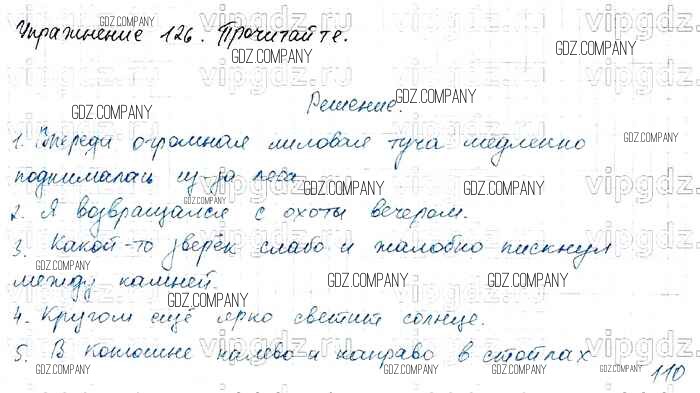 Упражнение 126. Прочитайте.
Решение.
1. Впереди огромная лиловая туча медленно
поднималась из-за леса
2. Я возвращался с охоты вечером.
3. Какой-то зверёк слабо и жалобно пискнул
между камней.
4. Кругом ещё ярко светит солнце.
5. В конюшне налево и направо в стойлах
110
GDZ.COMPANY
vipgdz.ru